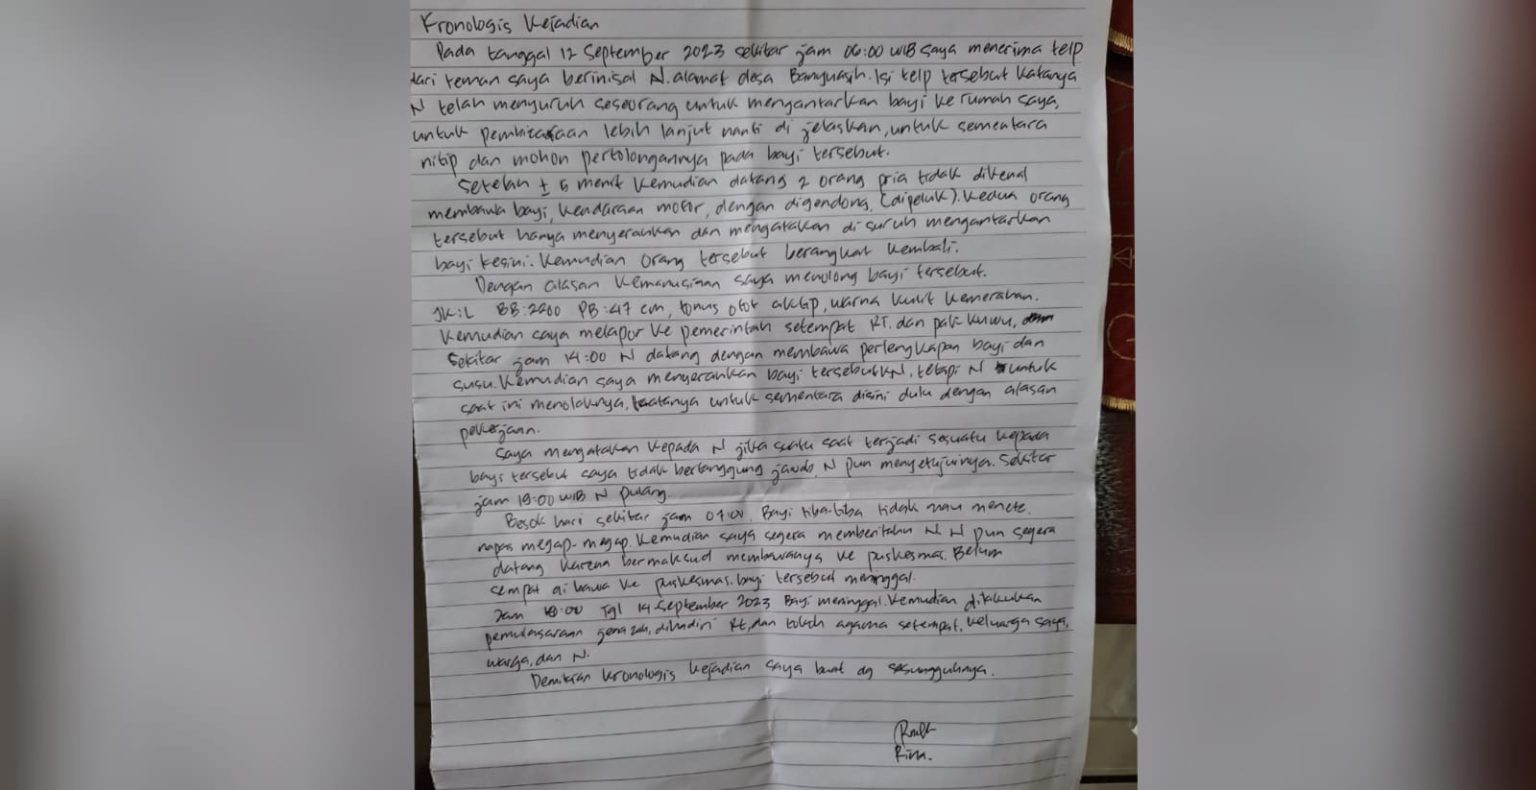 Kronologis Kejadian
Pada tanggal 12 September 2023 sekitar jam 06:00 WIB saya menerima telp
dari teman saya berinisal N. alamat desa Banyuasih. Isi telp tersebut katanya
N telah menyuruh seseorang untuk mengantarkan bayi ke rumah saya,
untuk pembicaraan lebih lanjut nanti di jelaskan, untuk sementara
nitip dan mohon pertolongannya pada bayi tersebut.
Setelah ± 5 menit kemudian datang 2 orang pria tidak dikenal
membawa bayi, kendaraan motor, dengan digendong, (dipeluk). Kedua orang
tersebut hanya menyerahkan dan mengatakan di suruh mengantarkan
bayi kesini. Kemudian orang tersebut berangkat kembali.
Dengan alasan kemanusiaan saya menolong bayi tersebut.
JK:L BB:2200 PB:47 cm, tonus otot aktip, warna kulit kemerahan.
Kemudian saya melapor ke pemerintah setempat RT. dan pak kuwu,
Sekitar jam 14:00 N datang dengan membawa perlengkapan bayi dan
susu. Kemudian saya menyerahkan bayi tersebut N, tetapi N untuk
saat ini menolaknya, katanya untuk sementara disini dulu dengan alasan
pekerjaan.
Saya mengatakan kepada N jika suatu saat terjadi sesuatu kepada
bayi tersebut saya tidak bertanggung jawab, N pun menyetujuinya. Sekitar
jam 19:00 WIB N pulang.
Besok hari sekitar jam Bayi tiba-tiba tidak mau menete.
napas megap-megap. Kemudian saya segera memberitahu N. N pun segera
datang karena bermaksud membawanya ke puskesmas. Belum
sempat di bawa ke puskesmas. bayi tersebut meninggal.
Jam Tgl 14 September 2023 Bayi meninggal. Kemudian dilakukan
pemulasaraan jenazah, dihadiri Rt, dan tokoh agama setempat, keluarga saya,
warga, dan N.
Demikian kronologis kejadian saya buat dg sesungguhnya.